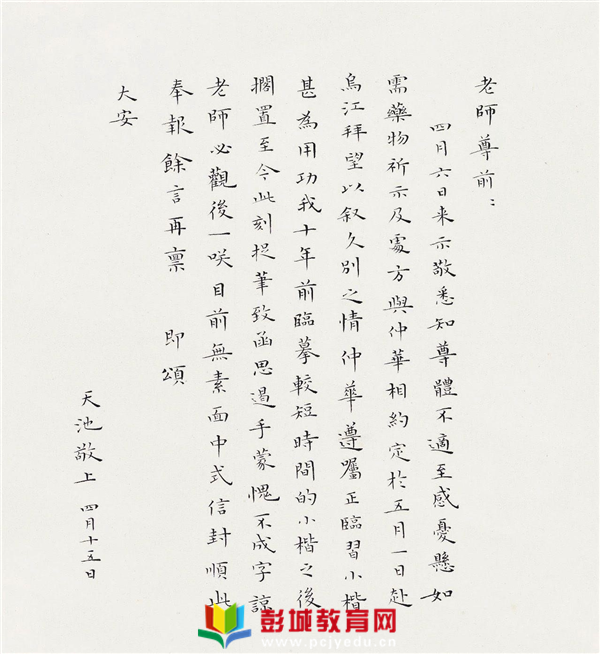 老師尊前：
四月六日来示敬悉知尊體不適至感憂懸如
需藥物祈示及處方與仲華相約定於五月一日赴
烏江拜望以叙久別之情仲華遵囑正臨習小楷
甚為用功我十年前臨摹較短時間的小楷之後
擱置至今此刻捉筆致函思過手蒙愧不成字諒
老師必觀後一咲目前無素面中式信封順此
奉報餘言再稟 即頌
大安
天池敬上 四月十五日
彭城教育网
www.pcjyedu.cn